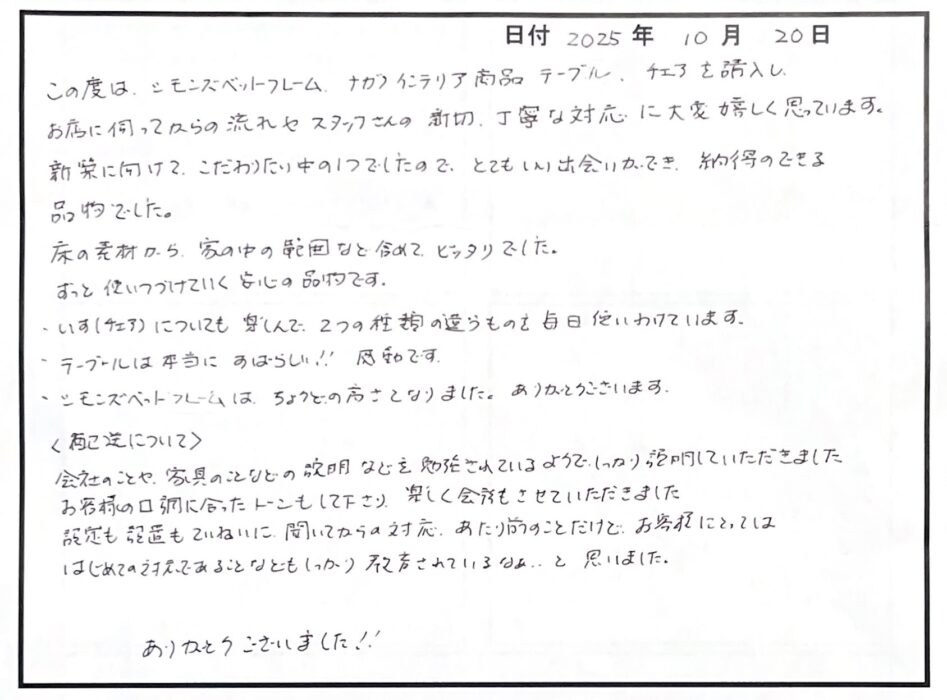 日付 2025 年 10 月 20 日
この度は、シモンズベットフレーム、ナガノインテリア商品 テーブル、チェアを購入し、
お店に伺ってからの流れやスタッフさんの親切、丁寧な対応に大変嬉しく思っています。
新築に向けて、こだわりたい中の1つでしたので、とてもいい出会いができ、納得のできる
品物でした。
床の素材から、家の中の範囲など含めて、ピッタリでした。
ずっと使いつづけていく安心の品物です。
・いす(チェア)についても楽しんで、2つの種類の違うものを毎日使いわけています。
・テーブールは本当にすばらしい!! 感動です。
・シモンズベットフレームは、ちょうどの高さとなりました。ありがとうございます。
〈配送について〉
会社のことや、家具のことなどの説明などを勉強されているようで、しっかり説明していただきました
お客様の口調に合ったトーンもして下さり、楽しく会話もさせていただきました
設定も設置もていねいに、聞いてからの対応、あたり前のことだけど、お客様にとっては
はじめての対応であることなどもしっかり教育されているなぁ..と思いました。
ありがとうございました!!